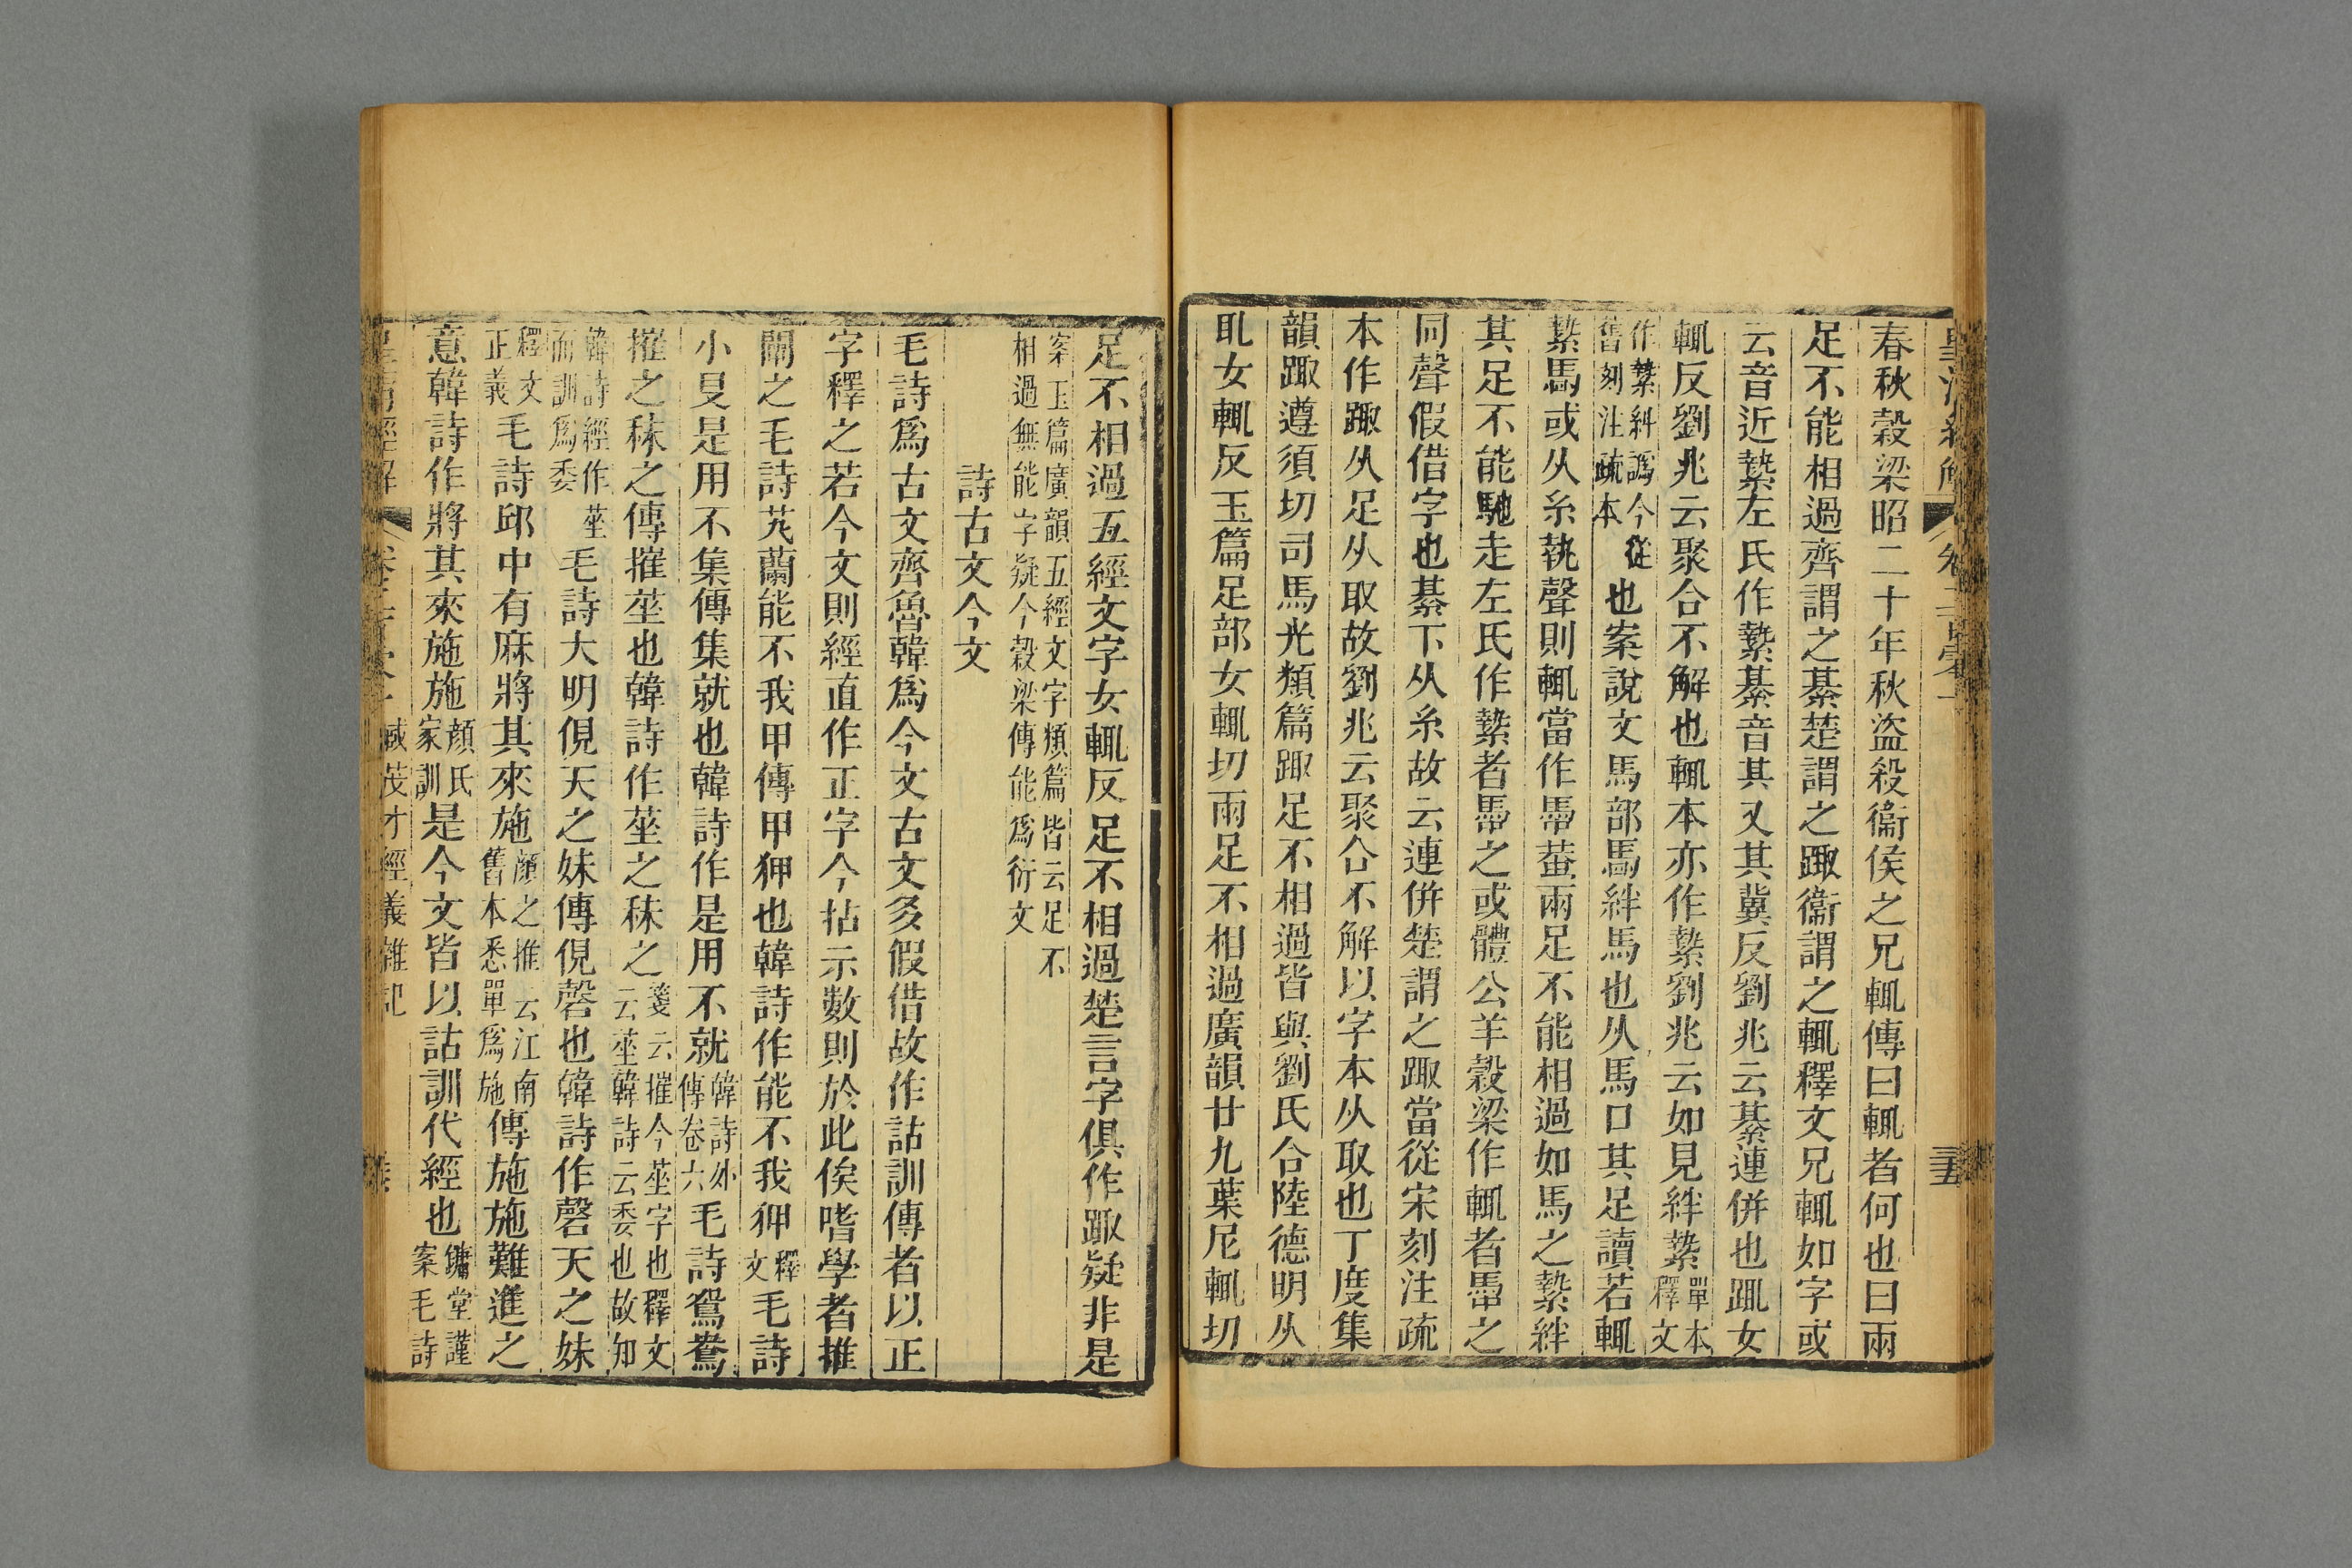 春秋穀梁昭二十年秋盜殺衞侯之兄輒傳曰輒者何也曰兩
足不能相過齊謂之綦楚謂之踙衞謂之輒釋文兄輒如字或
云音近縶左氏作縶綦音其又其冀反劉兆云綦連併也踂女
輒反劉兆云聚合不解也輒本亦作縶劉兆云如見絆縶單本釋文
作縶糾譌今從舊刻注疏本也案說文馬部馽絆馬也从馬口其足讀若輒
縶馬或从糸執聲則輒當作馽葢兩足不能相過如馬之縶絆
其足不能馳走左氏作縶者馽之或體公羊穀梁作輒者馽之
同聲假借字也綦下从糸故云連併楚謂之踙當從宋刻注疏
本作踙从足从取故劉兆云聚合不解以字本从取也丁度集
韻踙遵須切司馬光類篇踙足不相過皆與劉氏合陸德明从
耴女輒反玉篇足部女輒切兩足不相過廣韻廿九葉尼輒切
三五
足不相過五經文字女輒反足不相過楚言字俱作踙疑非是
案玉篇廣韻五經文字類篇皆云足不相過無能字疑今穀梁傳能爲衍文
詩古文今文
毛詩爲古文齊魯韓爲今文古文多假借故作詁訓傳者以正
字釋之若今文則經直作正字今拈示數則於此俟嗜學者推
闡之毛詩芄蘭能不我甲傳甲狎也韓詩作能不我狎釋文毛詩
小旻是用不集傳集就也韓詩作是用不就韓詩外傳卷六毛詩鴛鴦
摧之秣之傳摧莝也韓詩作莝之秣之箋云摧今莝字也釋文云莝韓詩云委也故知
韓詩經作莝而訓爲委毛詩大明俔天之妹傳俔磬也韓詩作磬天之妹
釋文正義毛詩邱中有麻將其來施顏之推云江南舊本悉單爲施傳施施難進之
意韓詩作將其來施施顏氏家訓是今文皆以詁訓代經也鏞堂謹案毛詩
皇清經解
臧茂才經義雜記